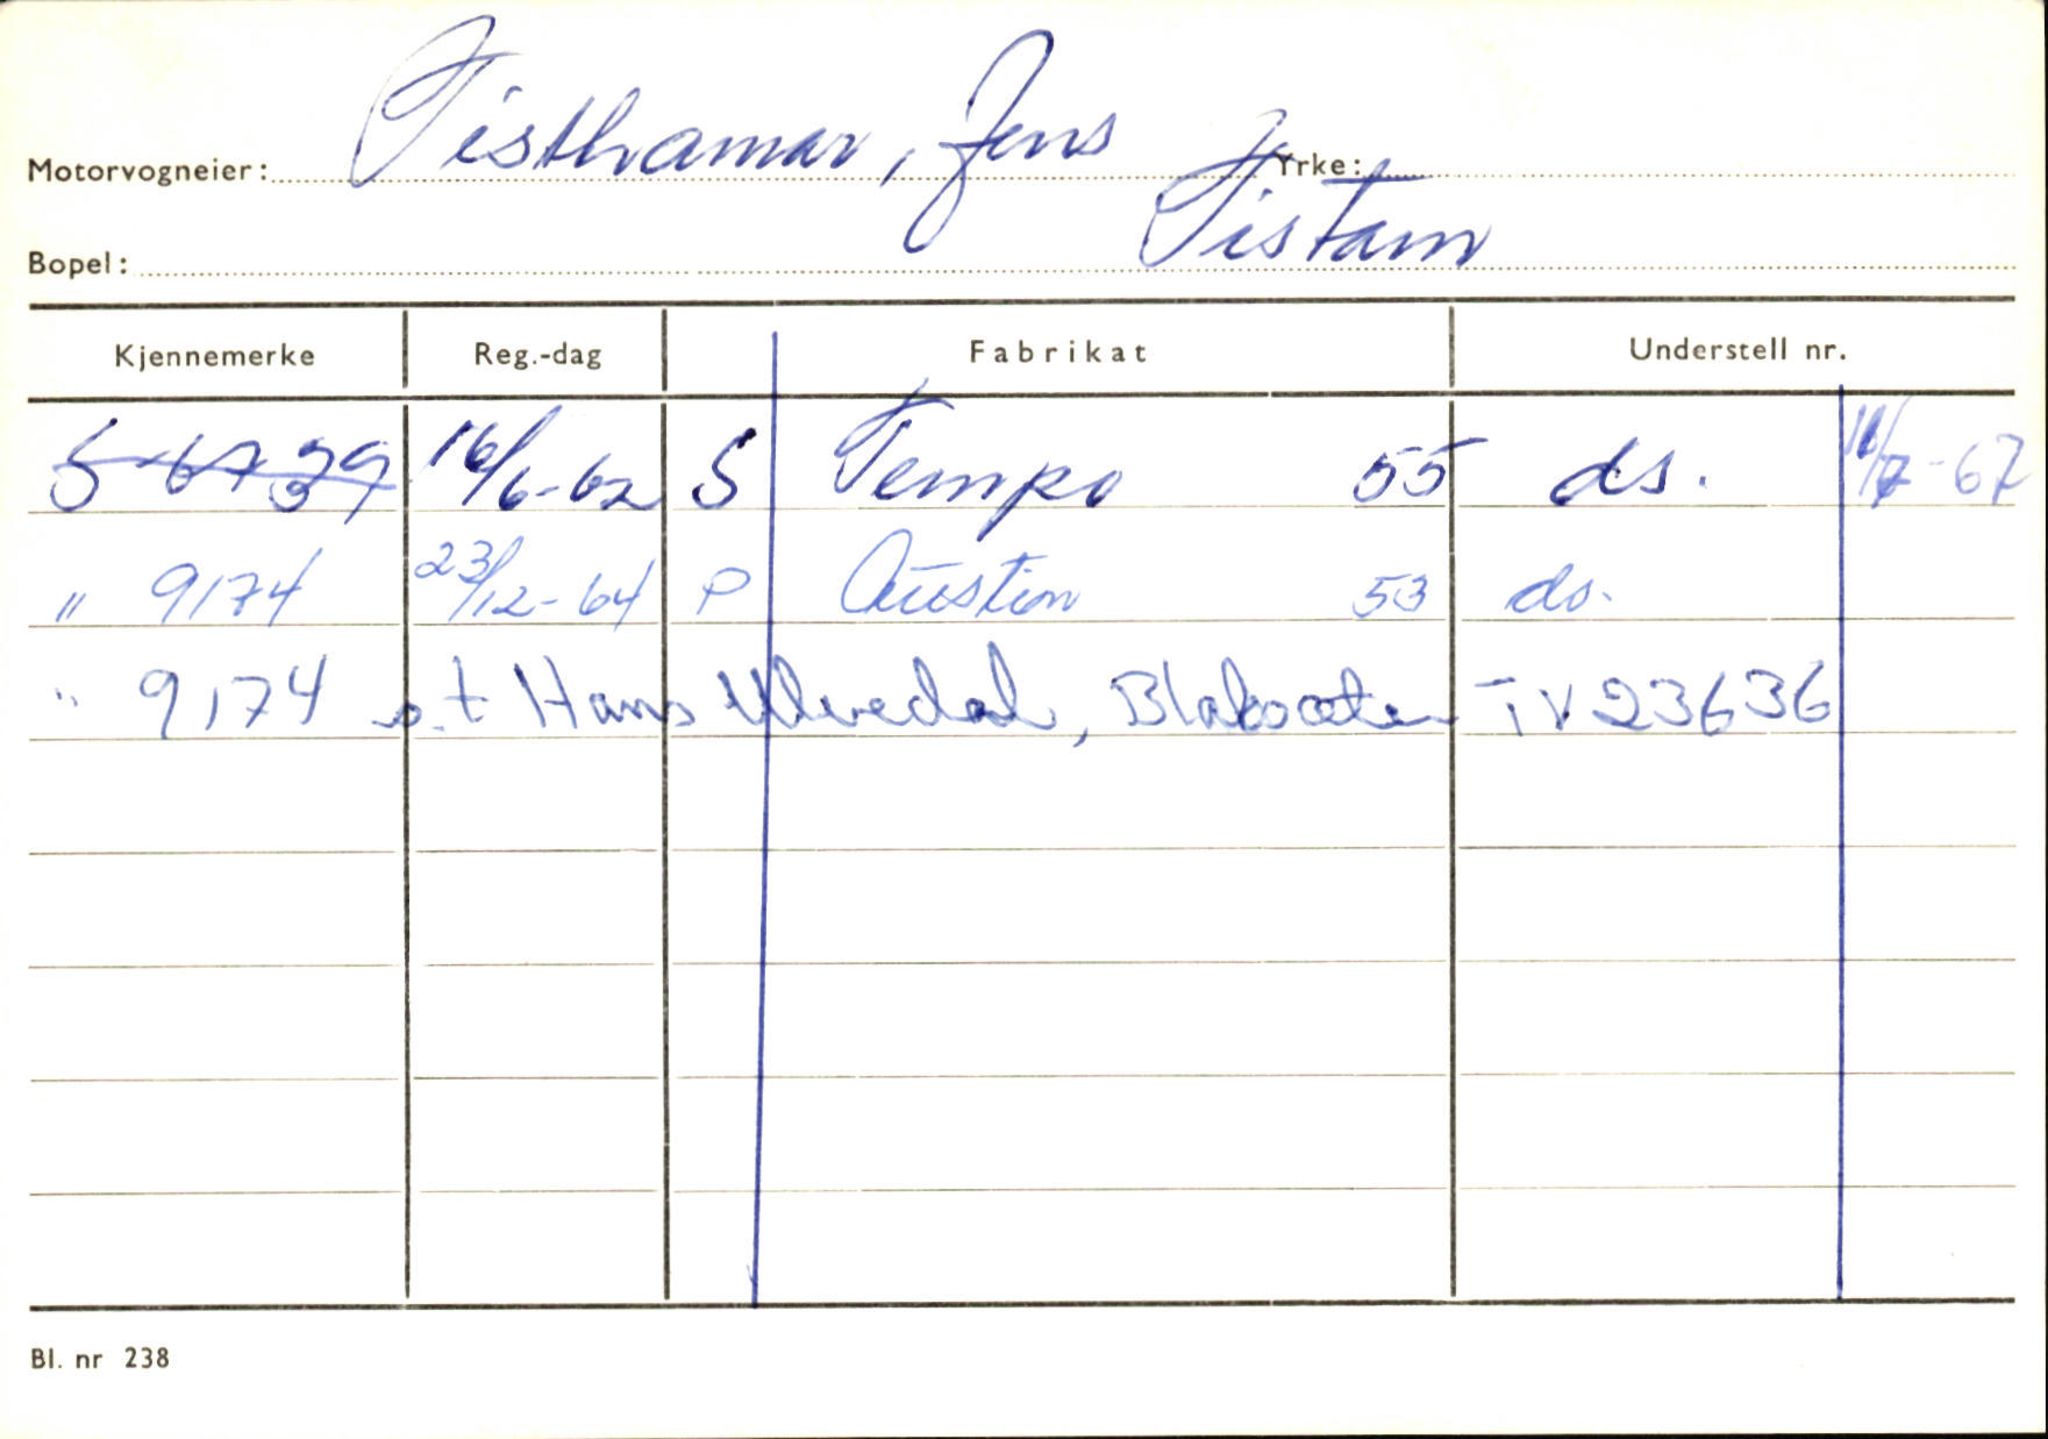 Motorvogneier: Tisthamar, Jens Yrke:
Bopel: Tistam
Kjennemerke Reg.-dag Fabrikat Understell nr.
S-6739 16/6-62 S Tempo 55 ds. 11/7-67
" 9174 23/12-64 P Austin 53 ds.
" 9174 o.t Hans Ulvedal, Blaksæter TV23636
Bl. nr 238